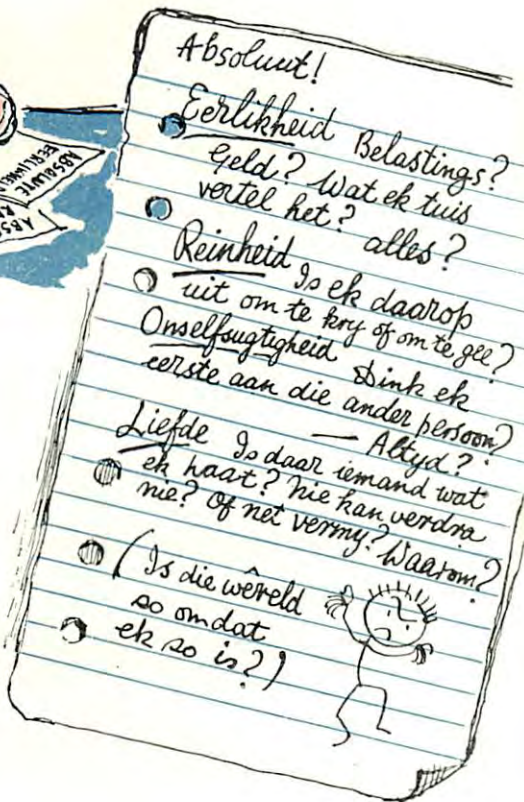 ABSOLUTE
Absoluut!
Eerlikheid Belastings?
Geld? Wat ek tuis
vertel het? alles?
Reinheid Is ek daarop
uit om te kry of om te gee?
Onselfsugtigheid Dink ek
eerste aan die ander persoon?
— Altyd?
Liefde Is daar iemand wat
ek haat? Nie kan verdra
nie? Of net vermy? Waarom?
(Is die wêreld
so omdat
ek so is?)